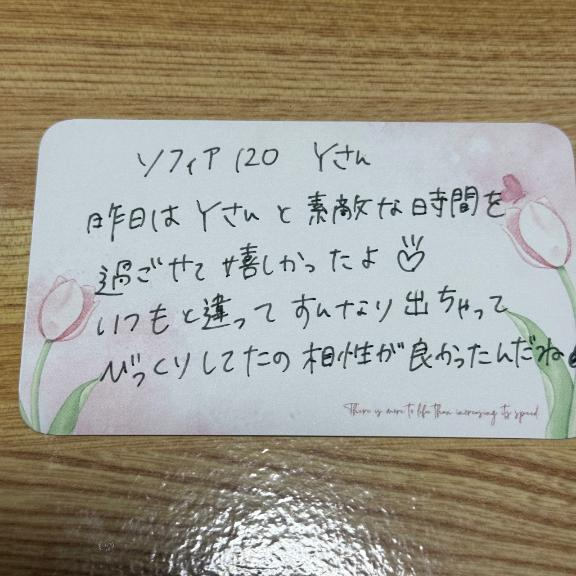 ソフィア 120 Yさん
昨日は Yさんと 素敵な時間を
過ごせて 嬉しかったよ ♡
いつもと違って すんなり 出ちゃって
びっくりしてたの 相性が 良かったんだね
There is more to life than increasing its speed.